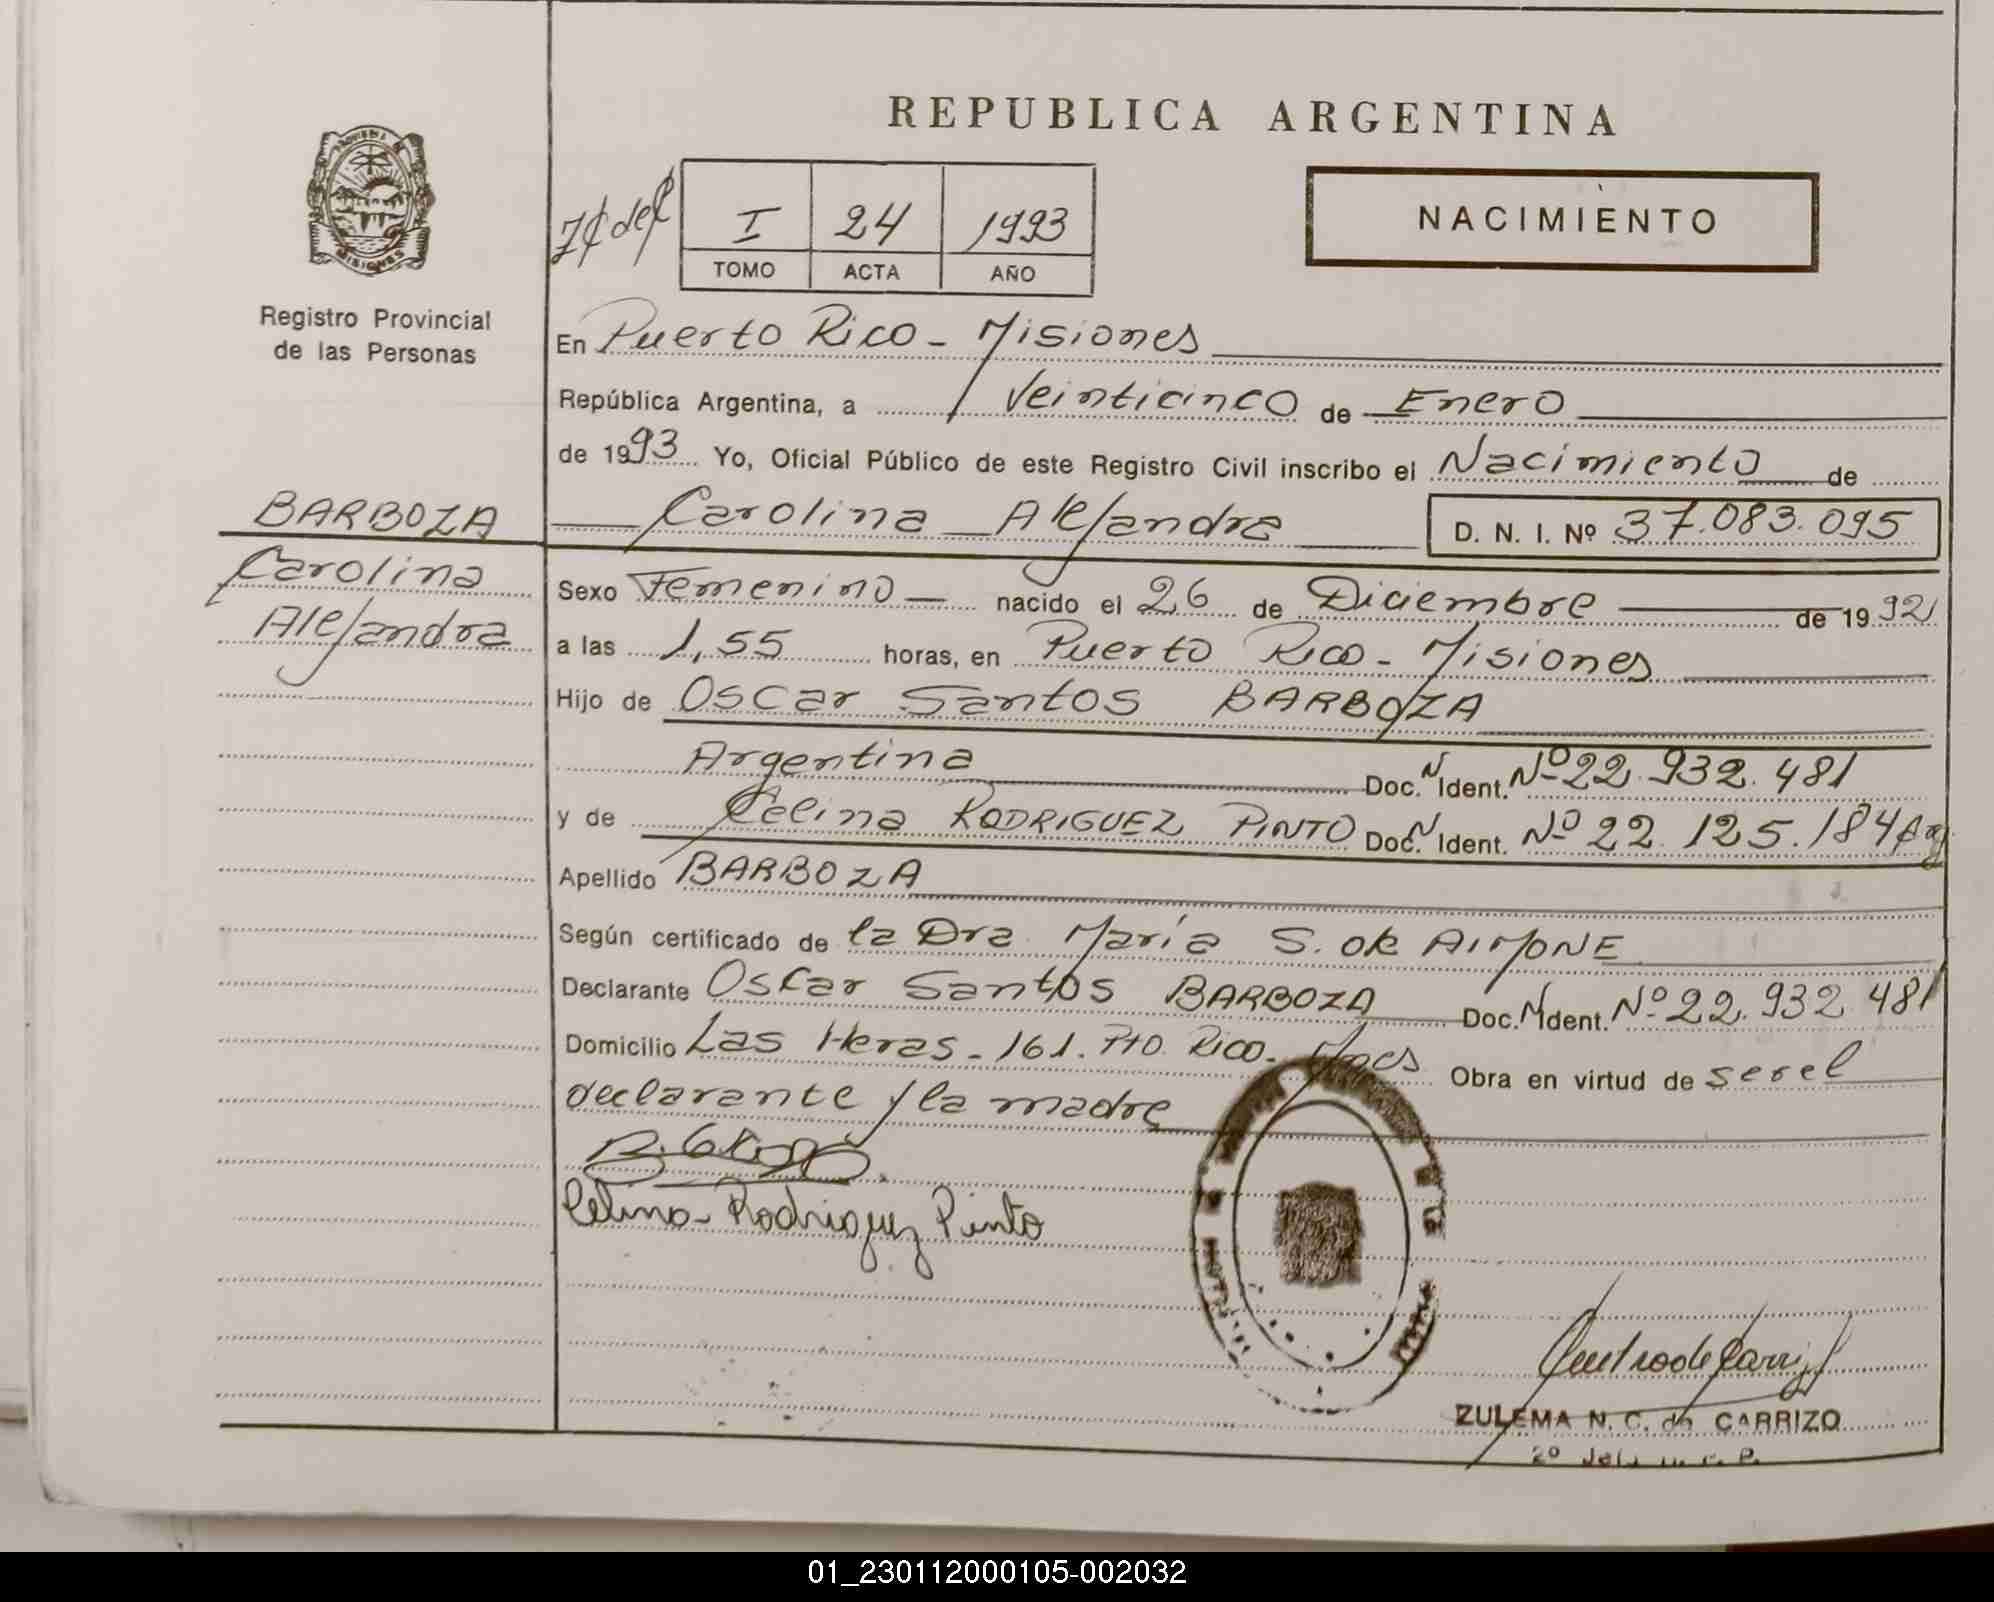 REPUBLICA ARGENTINA
PROVINCIA DE
MISIONES
Registro Provincial
de las Personas
I 24 1993
TOMO ACTA AÑO
NACIMIENTO
En Puerto Rico - Misiones
República Argentina, a Veinticinco de Enero
de 1993 Yo, Oficial Público de este Registro Civil inscribo el Nacimiento de
BARBOZA
Carolina Alejandra D. N. I. Nº 37.083.095
Carolina
Alejandra
Sexo Femenino nacido el 26 de Diciembre de 1992
a las 1,55 horas, en Puerto Rico - Misiones
Hijo de Oscar Santos BARBOZA
Argentina Doc. N Ident. Nº 22.932.481
y de Celina RODRIGUEZ PINTO Doc. N Ident. Nº 22.125.184 Arg
Apellido BARBOZA
Según certificado de la Dra. María S. de AIMONE
Declarante Oscar Santos BARBOZA Doc. N Ident. Nº 22.932.481
Domicilio Las Heras - 161. Pto. Rico - Mnes Obra en virtud de ser el
declarante y la madre
Celina Rodriguez Pinto
ZULEMA N. C. de CARRIZO
01_230112000105-002032